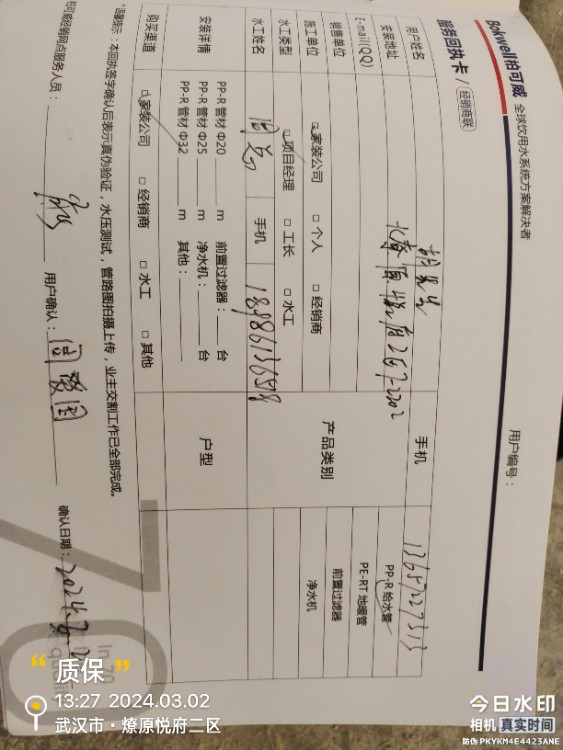 Bekwell柏可威 全球饮用水系统方案解决者
用户编号：
服务回执卡 / 经销商联
用户姓名 手机 13657227313
安装地址 2-2202 PP-R 给水管
E-mail(QQ) PE-RT 地暖管
销售单位 产品类别 前置过滤器
施工单位 家装公司 □ 个人 □ 经销商 净水机
水工类型 项目经理 □ 工长 □ 水工
水工姓名 周总 手机
安装详情 PP-R 管材 Φ20 m 前置过滤器： 台 户型
PP-R 管材 Φ25 m 净水机： 台
PP-R 管材 Φ32 m 其他：
购买渠道 家装公司 □ 经销商 □ 水工 □ 其他
*温馨提示：本回执签字确认后表示真伪验证，水压测试，管路图拍摄上传，业主交割工作已全部完成。
柏可威经销网点服务人员： 用户确认： 确认日期：2024.3.2
“ 质保 ”
13:27 2024.03.02
武汉市·燎原悦府二区
今日水印
相机 真实时间
防伪 PKYKM4E4423ANE